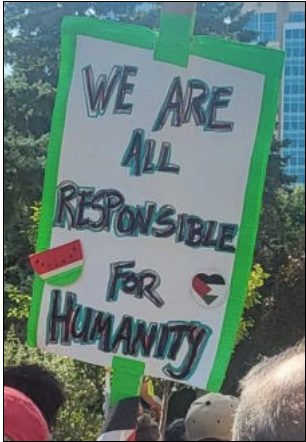 WE ARE
ALL
RESPONSIBLE
FOR
HUMANITY